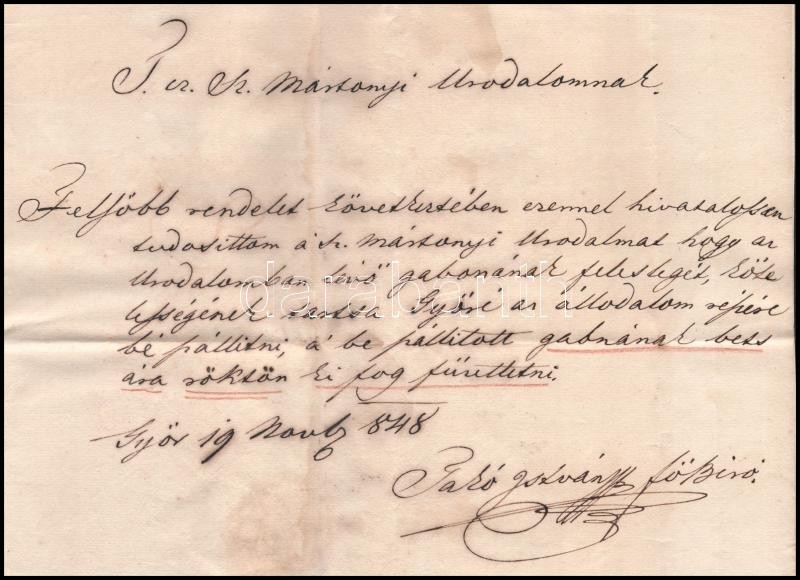 T. cz. Sz. Mártonyi Urodalomnak.
Felsöbb rendelet következtében ezennel hivatalossan
tudosittom a sz. mártonyi Urodalmat hogy az
Urodalomban lévö gabonának feleslegét, köte
lességének tartsa Györé az állodalom részére
bé szállitni, á be szállitott gabnának bets
ára röktön ki fog fizettetni.
Györ 19 Novb 848
István föbiró.
databanth